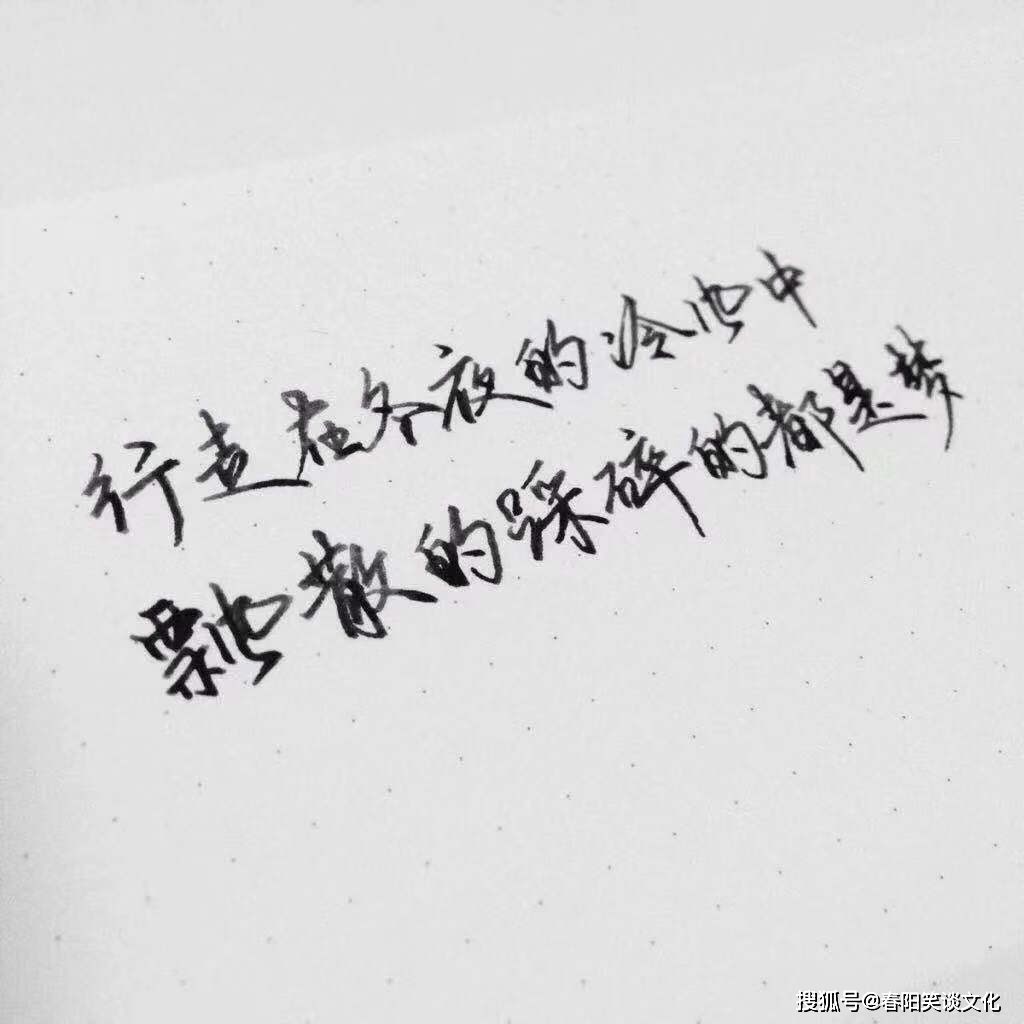 行走在冬夜的冷风中
飘散的踩碎的都是梦
搜狐号@春阳笑谈文化